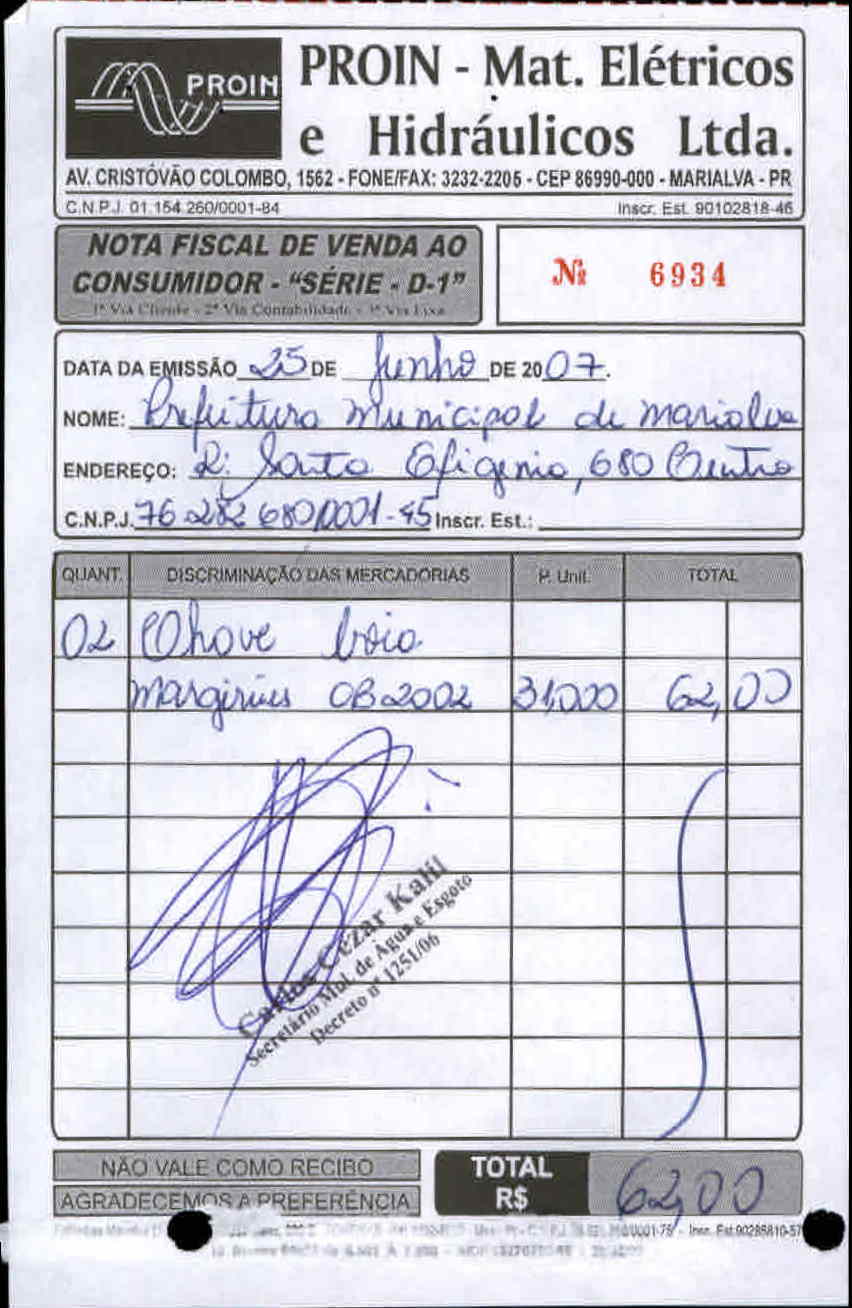 PROIN
PROIN - Mat. Elétricos
e Hidráulicos Ltda.
AV. CRISTÓVÃO COLOMBO, 1562 - FONE/FAX: 3232-2205 - CEP 86990-000 - MARIALVA - PR
C.N.P.J. 01.154.260/0001-84 Inscr. Est. 90102818-46
NOTA FISCAL DE VENDA AO
CONSUMIDOR - "SÉRIE - D-1"
1ª Via Cliente - 2ª Via Contabilidade - 3ª Via Fixa
Nº 6934
DATA DA EMISSÃO 25 DE Junho DE 2007.
NOME: Prefeitura Municipal de Marialva
ENDEREÇO: R: Santa Efigenia, 680 Centro
C.N.P.J. 76 282 680/0001-45 Inscr. Est.:
QUANT. DISCRIMINAÇÃO DAS MERCADORIAS P. Unit. TOTAL
02 Chave boia
Margirius CB 2002 31,000 62,00
Carlos Cezar Kalil
Secretário Mul. de Água e Esgoto
Decreto nº 1251/06
NÃO VALE COMO RECIBO
AGRADECEMOS A PREFERÊNCIA
TOTAL
R$ 62,00
/0001-75 - Insc. Est. 90285810-57